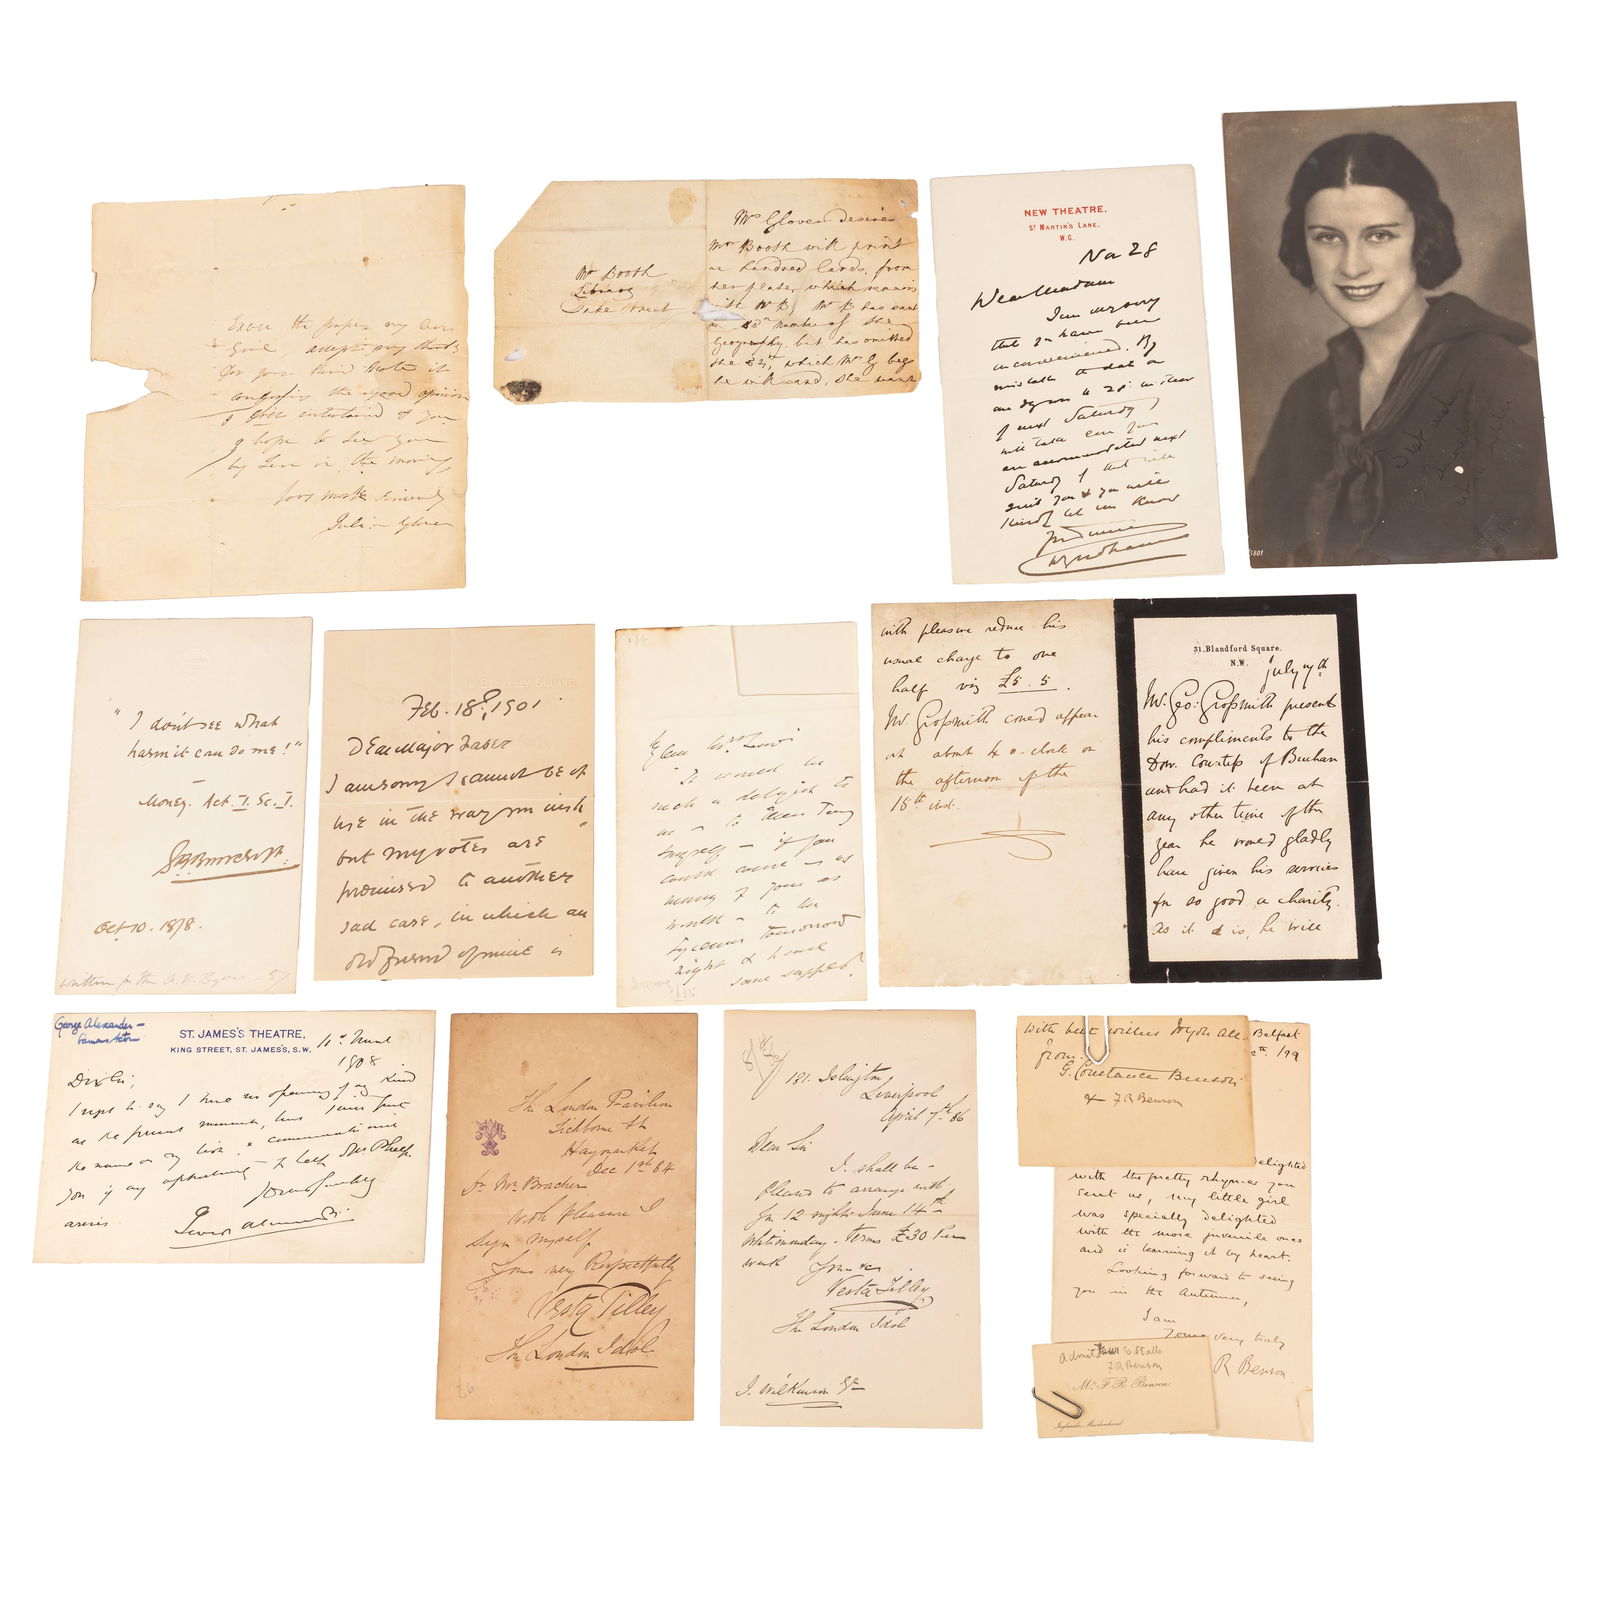 Excuse the paper my dear
Girl accept my thanks
for your kind Note it
confirming the good opinion
I entertained of you
I hope to see you
in the morning
Yours most sincerely
Julia Glover
Mr Booth
Library
Duke Street
Mrs Glover desires
Mr Booth will print
a hundred Cards, from
her plate, which remains
with Mr B, Mr B has sent
a Number of the
Geography, but has omitted
the which Mrs G begs
he will send, She wants
NEW THEATRE,
ST MARTIN'S LANE,
W.C.
Nov 28
Dear Madam
I am very sorry
that you have been
inconvenienced. By
mistake the date on
was 28 instead
of next Saturday
will take care you
are accommodated next
Saturday if that will
suit you & you will
kindly let me know
Wyndham
Best wishes
5801
"I don't see what
harm it can do me!"
Money. Act. I. Sc. I.
Oct 10. 1878.
written for the
BERKELEY SQUARE
Feb. 18th, 1901
Dear Major Faber
I am sorry I cannot be of
use in the way you wish
but my votes are
promised to another
sad case, in which an
old friend of mine is
It would be
such a delight to
us – to Ellen Terry
myself – if you
could come – as
many of you as
would – to the
Lyceum tomorrow
night & have
some supper?
with pleasure reduce his
usual charge to one
half viz £5.5.
Mr. Grossmith could appear
at about 4 o-clock on
the afternoon of the
18th inst.
31, Blandford Square.
N.W.
July 7th
Mr. Geo: Grossmith presents
his compliments to the
Dow. Countess of Buchan
and had it been at
any other time of the
year he would gladly
have given his services
for so good a charity.
As it is, he will
George Alexander –
famous Actor
ST. JAMES'S THEATRE,
KING STREET, ST. JAMES'S, S.W.
1908
Dear Sir,
I regret to say I have no opening of any kind
at the present moment, but I will put
the name on my list & communicate with
you if any opportunity to help Mrs Phelps
arises.
Yours faithfully
George Alexander
The London Pavilion
Tichborne St
Haymarket
Dec 1st 84
To Mr. Bracher
With pleasure I
sign myself
Yours very Respectfully
Vesta Tilley
The London Idol
£6
181. Islington,
Liverpool
April 7th 86
Dear Sir
I shall be
pleased to arrange with
for 12 nights June 14th
Whitmonday. Terms £30 Per
week
Yours &c.
Vesta Tilley
The London Idol
J. Wilkinson Esq
With best wishes to you all.
from.
G. Constance Benson
& F R Benson
Belfast
/99
delighted
with the pretty rhymes you
sent us, my little girl
was specially delighted
with the more juvenile ones
and is learning it by heart.
Looking forward to seeing
you in the Autumn,
I am
Yours very truly
R Benson.
Admit Four to Stalls
F R Benson
Mr. F. R. Benson